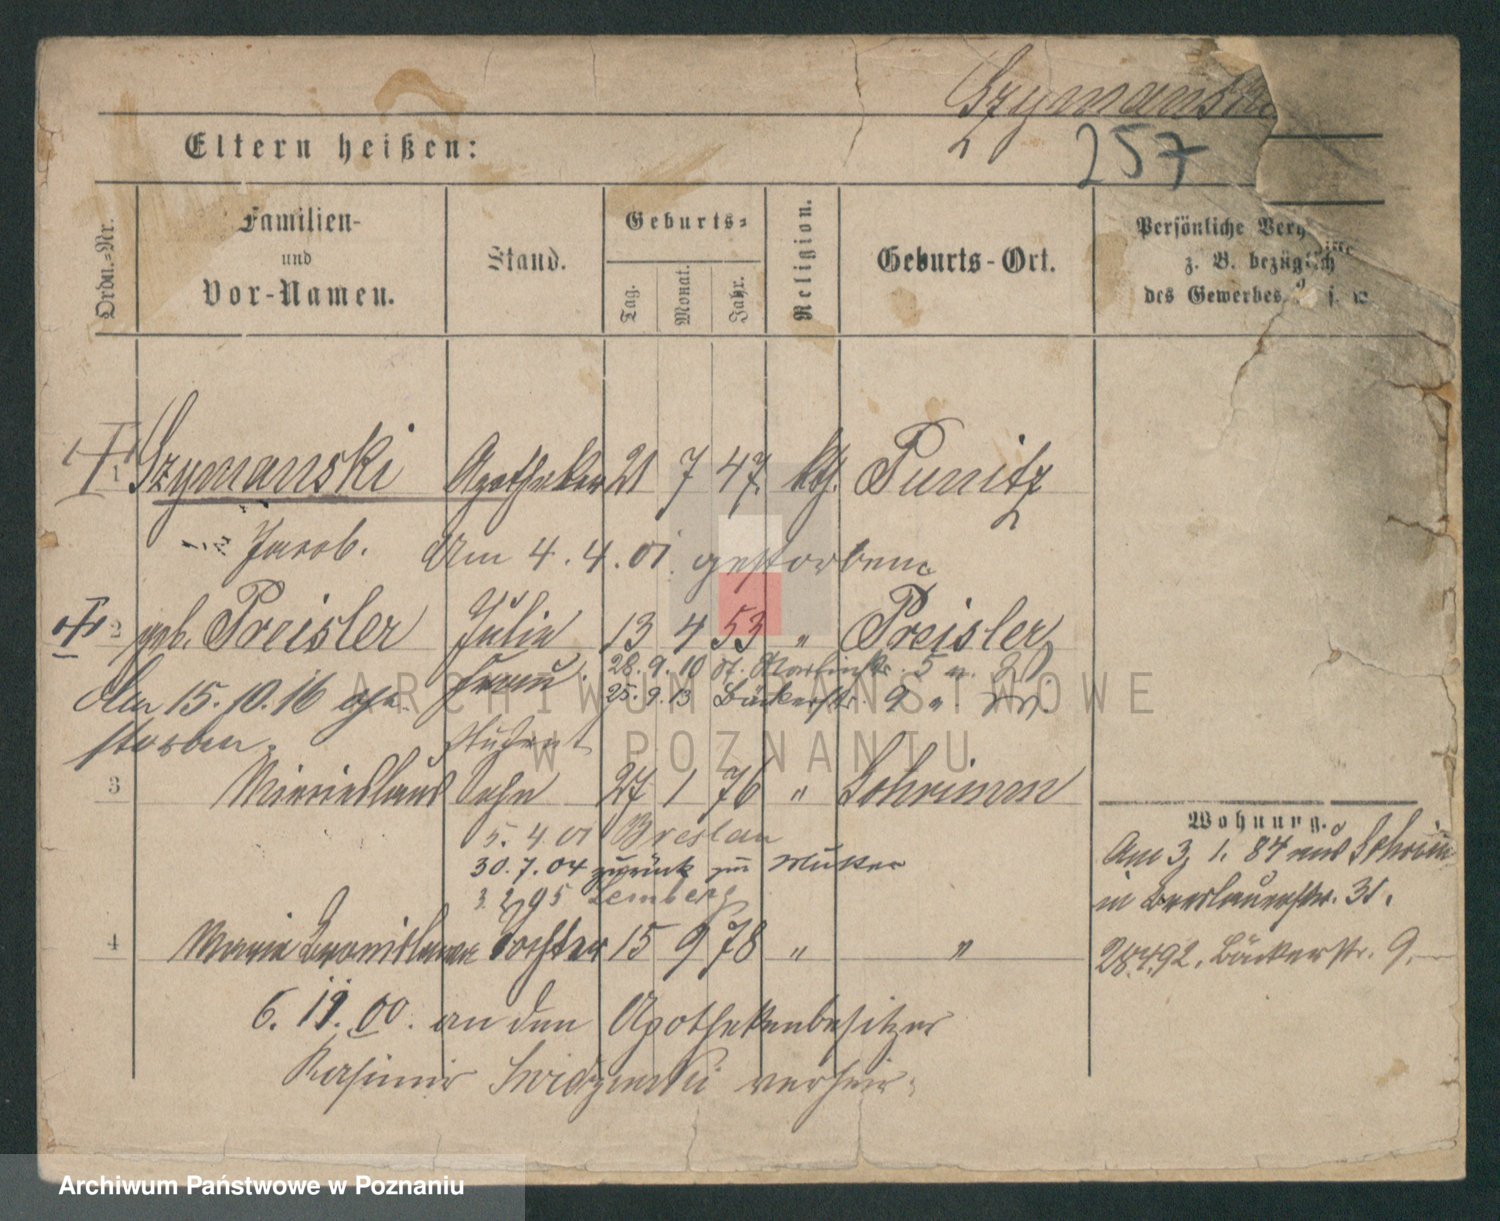 Szymanski
257
Eltern heißen:
Ordn.-Nr.
Familien-
und
Vor-Namen.
Stand.
Geburts-
Tag.
Monat.
Jahr.
Religion.
Geburts-Ort.
Persönliche
z. B. bezüglich
des Gewerbes
1 Szymanski Apotheker 21 7 47. kth. Punitz
Jacob. Am 4.4.01. gestorben
2 geb. Preisler Julie 13 4 53 " Preisler
Frau. 28.9.10 St. Martinstr. 5
Am 15.10.16 ge 25.9.13 Bäckerstr. 9
storben. Student
3 Sohn 27 1 76 " Schrimm
5.4.01 Breslau
30.7.04 zurück zur Mutter
3.2.95 Lemberg
4 Marie Bronislawa Tochter 15 9 78 " "
6. 11. 00. an den Apothekenbesitzer
Kasimir verheir.
Wohnung.
Am 3. 1. 84 aus Schrimm
in Breslauerstr. 31.
28.4.92. Bäckerstr. 9.
ARCHIWUM PAŃSTWOWE
W POZNANIU
Archiwum Państwowe w Poznaniu